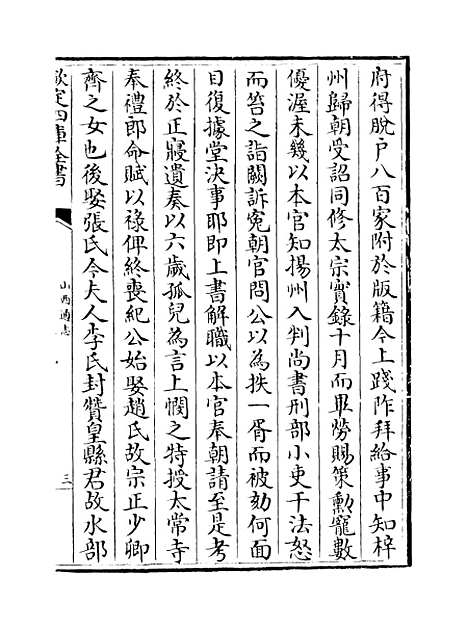 府得脫户八百家附於版籍今上踐阼拜給事中知梓
州歸朝受詔同修太宗實錄十月而畢勞賜策勲寵數
優渥未幾以本官知揚州入判尚書刑部小吏干法怒
而笞之詣闕訴寃朝官問公以為抶一胥而被劾何面
目復據堂決事耶即上書解職以本官奉朝請至是考
終於正寢遺奏以六歲孤兒為言上憫之特授太常寺
奉禮郎命賦以祿俾終喪紀公始娶趙氏故宗正少卿
齊之女也後娶張氏今夫人李氏封贊皇縣君故水部
欽定四庫全書
山西通志
三